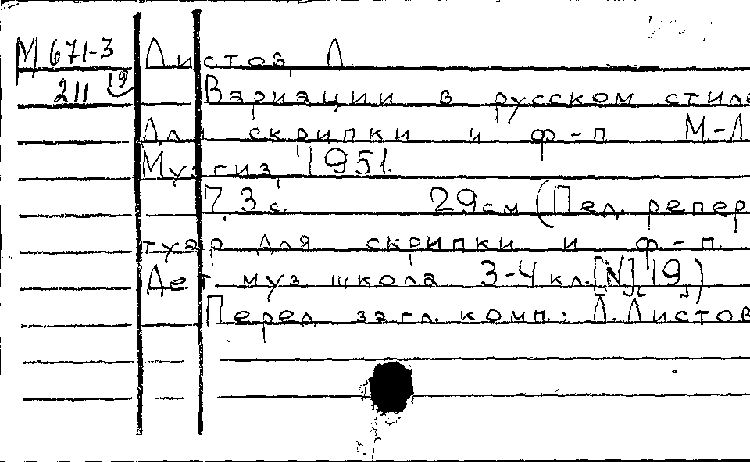 М 671-3 Листов, Л.
211 19 Вариации в русском стиле
Для скрипки и ф-п М-Л
Музгиз, 1951.
7, 3 с. 29 см (Пед. репер
туар для скрипки и ф-п.
Дет. муз школа 3-4 кл. [N] 19)
Перед загл. комп.: Л. Листов